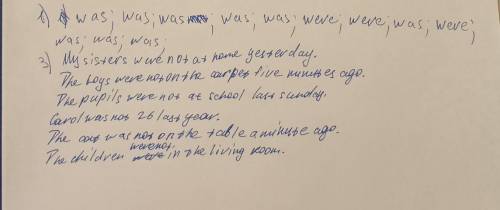 2) was; was; was; was, was; were, were; was; were;
was; was; was;
3) My sisters were not at home yesterday.
The boys were not on the carpet five minutes ago.
The pupils were not at school last sunday.
Carol was not 26 last year.
The was not on the table a minute ago.
The children were not in the living room.